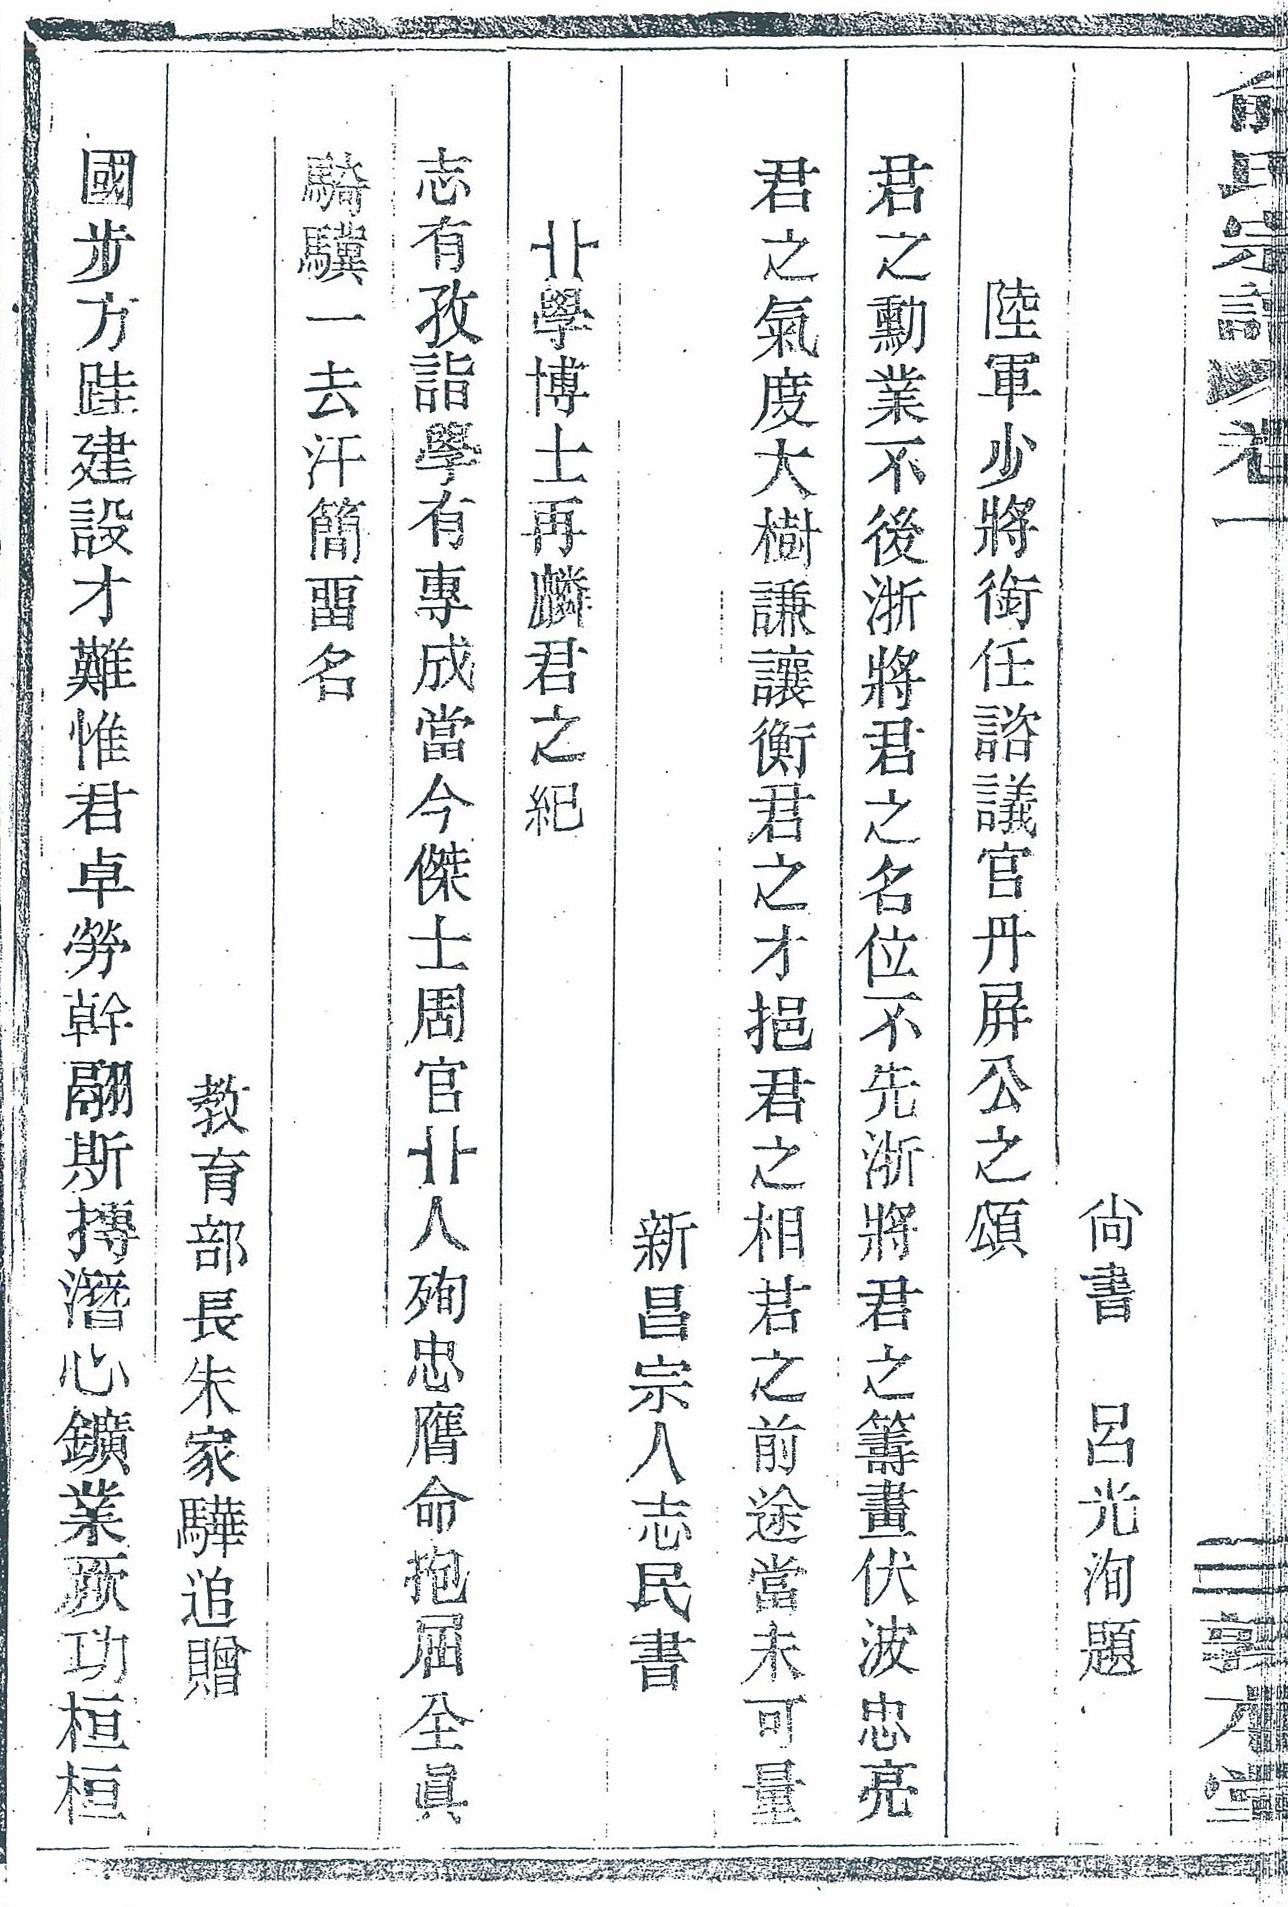 俞氏宗譜 卷一 三 敦本堂
尙書 呂光洵題
陸軍少將銜任諮議官丹屏公之頌
君之勳業不後浙將君之名位不先浙將君之籌畫伏波忠亮
君之氣度大樹謙讓衡君之才挹君之相若君之前途當未可量
新昌宗人志民書
卝學博士再麟君之紀
志有孜詣學有專成當今傑士周官卝人殉忠膺命抱屈全眞
騎驥一去汗簡畱名
教育部長朱家驊追贈
國步方陡建設才難惟君卓勞幹翮斯摶潛心鑛業厥功桓桓